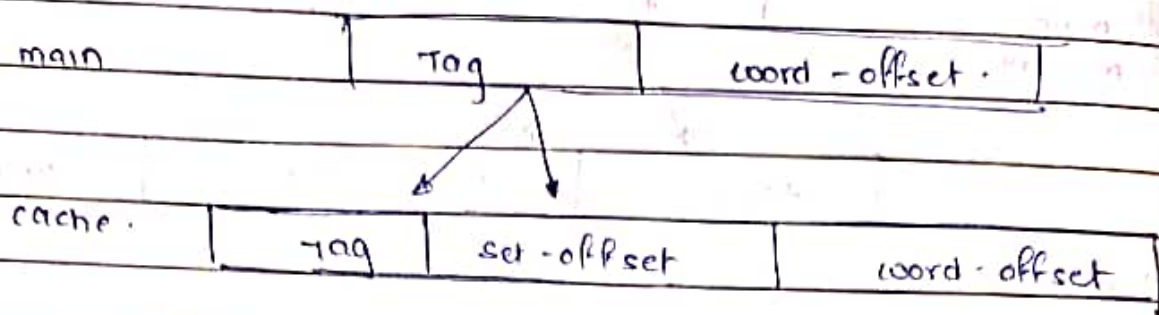 main Tag word-offset.
cache. Tag set-offset word-offset